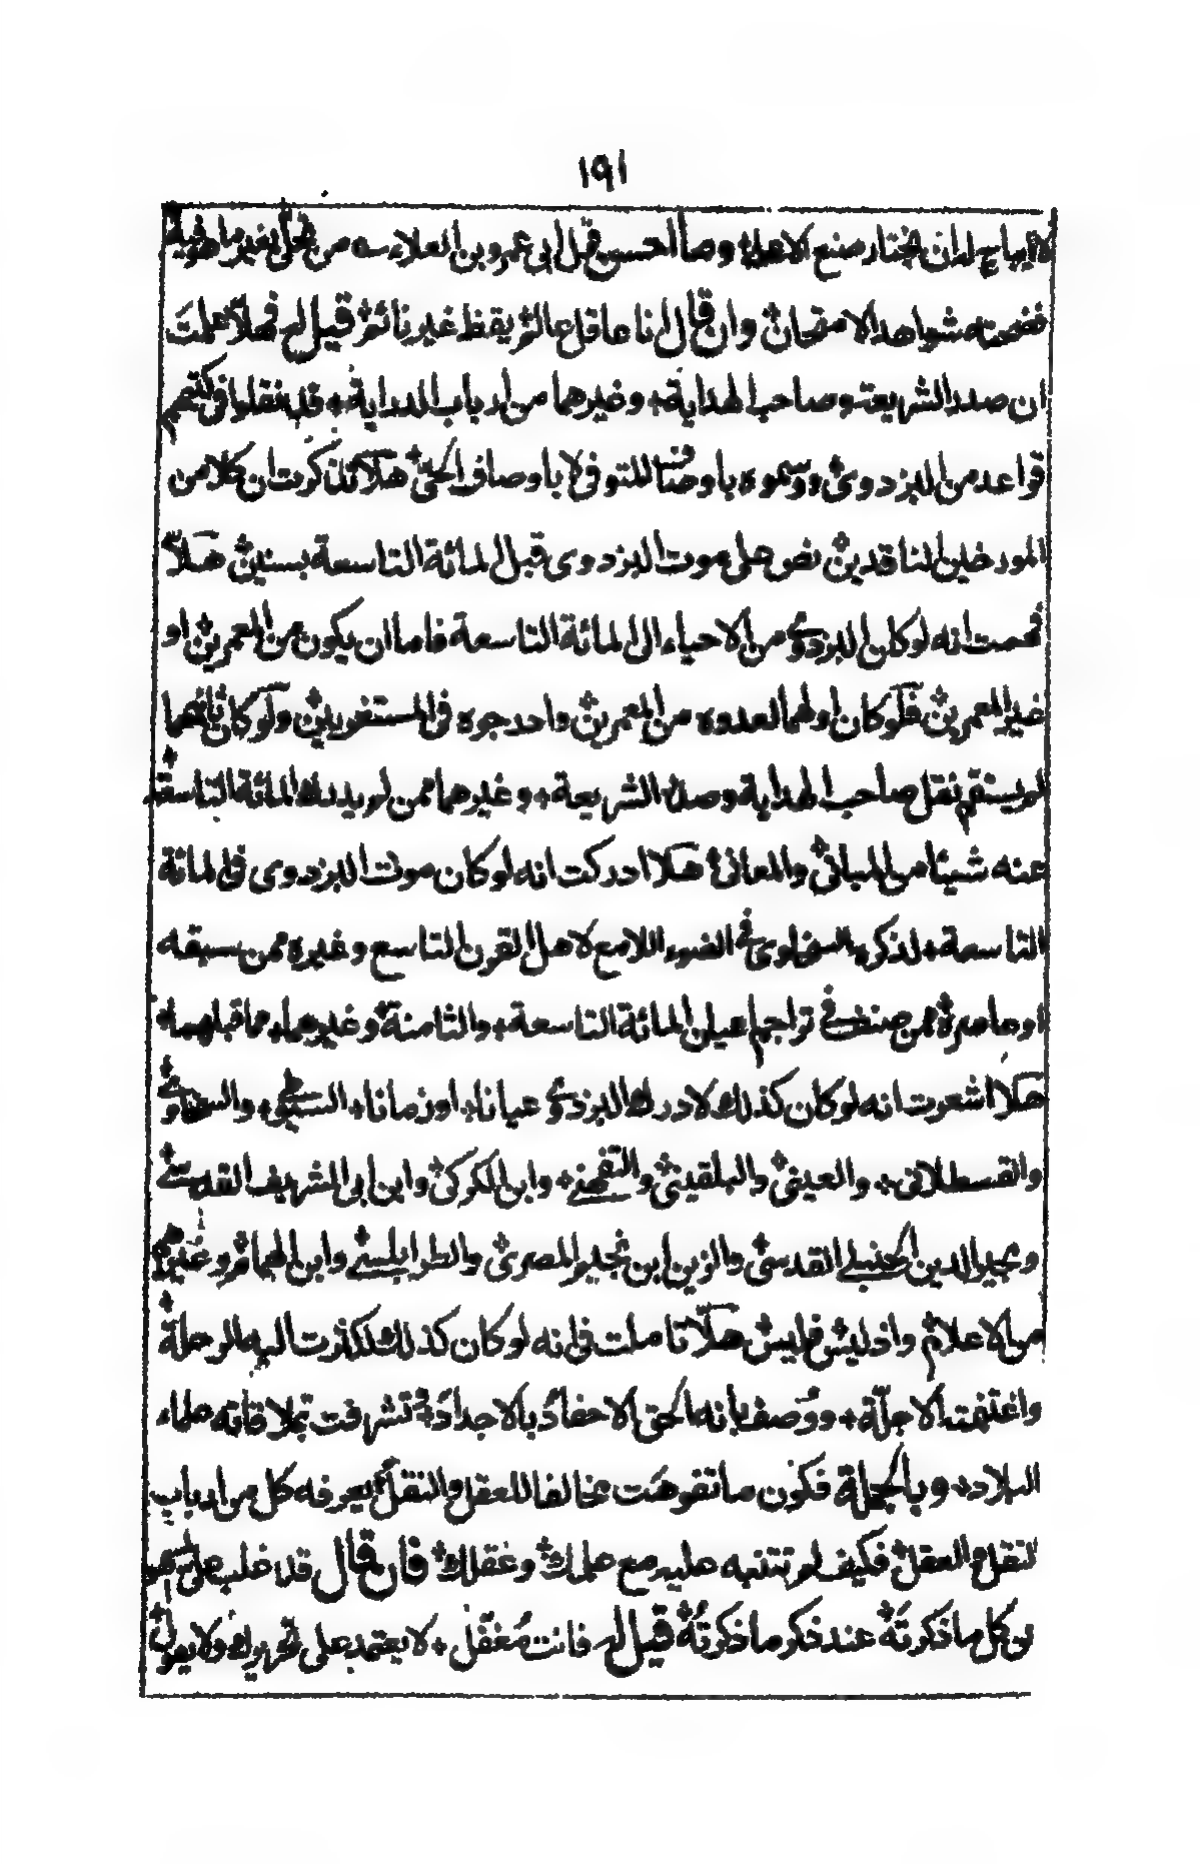 ١٩١
لا يباح له ان يختار صنع الاعلاء وما احسن قول ابى عمرو بن العلاء سه من تحلى بغير ما هو فيه
فضحته شواهد الامتحان وان قال انا عاقل عالم يقظ غير نائم قيل له فهلا علمت
ان صدر الشريعة وصاحب الهداية وغيرهما من ارباب الدراية قد نقلوا فى كتبهم
قواعد من البزدوى ووسموه باوصاف المتوفى لا باوصاف الحى هلا تذكرت ان كلا من
المورخين الناقدين نص على موت البزدوى قبل المائة التاسعة بسنين هلا
فهمت انه لو كان البزدوى من الاحياء الى المائة التاسعة فاما ان يكون من المعمرين او
غير المعمرين فلو كان اولهما لعدوه من المعمرين واحد جوه فى المستغربين ولو كان ثانيهما
لم يستقم نقل صاحب الهداية وصدر الشريعة وغيرهما ممن لم يدرك المائة التاسعة
عنه شيئا من المبانى والمعانى هلا ادركت انه لو كان موت البزدوى فى المائة
التاسعة لذكره السخاوى فى الضوء اللامع لاهل القرن التاسع وغيره ممن سبقه
او عاصره ممن صنف فى تراجم اعيان المائة التاسعة والثامنة وغيرهما مما قبلهما
هلا اشعرت انه لو كان كذلك لادرك البزدوى عيانا او زمانا السيوطى والسخاوى
والقسطلانى والعينى والبلقينى والتفهنى وابن الكركى وابن ابى الشريف القدسى
ومجير الدين الحنبلى القدسى والزين ابن نجيم المصرى والطرابلسى وابن الهمام وغيرهم
من الاعلام واذ ليس فليس هلا تاملت فى انه لو كان كذلك لكثرت اليه الرحلة
واغتنمته الاجلة ووصف بانه الحق الاحفاد بالاجداد وتشرفت بملاقاته علماء
البلاد وبالجملة فكون ما تفوهت مخالفا للعقل والنقل يعرفه كل من ارباب
النقل والعقل فكيف لم تتنبه عليه مع علمك وعقلك فان قال قد غلب على السهو
فى كل ما ذكرته عند ذكر ما ذكرته قيل له فانت مغفل لا يعتمد على تحريرك ولا يعول